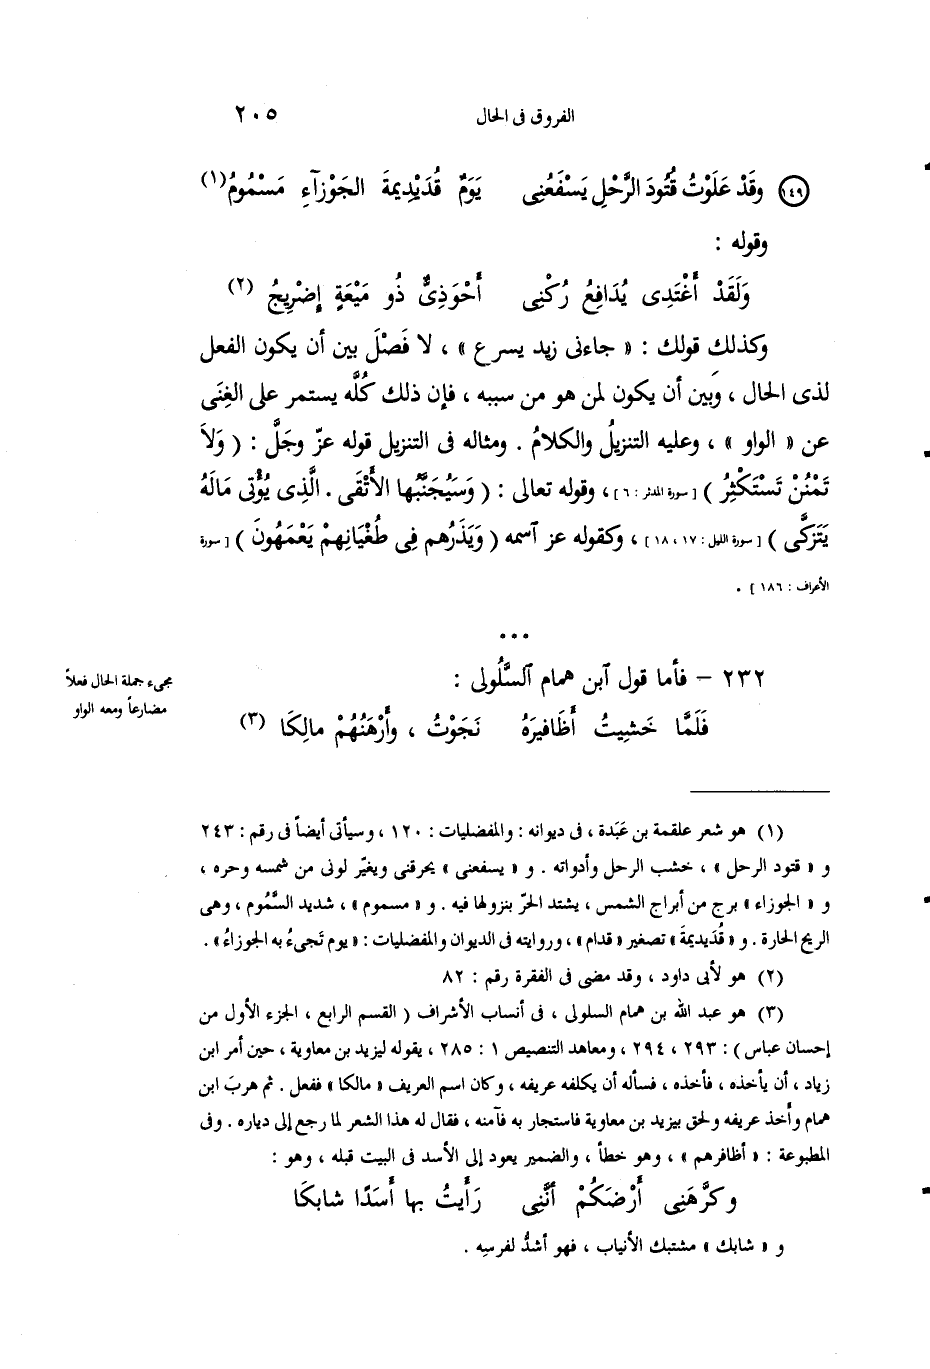 الفروق فى الحال ٢٠٥
(١٤٩) وقَدْ عَلَوْتُ قُتُودَ الرَّحْلِ يَسْفَعُنِى يَوَمٌ قُدَيْدِيمةَ الجَوْزآءِ مَسْمُومُ (١)
وقوله :
وَلَقَدْ أَغْتَدِى يُدَافِعُ رُكْنِى أَحْوَذِىٌّ ذُو مَيْعَةٍ إضْرِيجُ (٢)
وكذلك قولك : « جاءنى زيد يسرع » ، لا فَصْلَ بين أن يكون الفعل
لذى الحال ، وبَين أن يكون لمن هو من سببه ، فإن ذلك كُلَّه يستمر على الغِنَى
عن « الواو » ، وعليه التنزيلُ والكلامُ . ومثاله فى التنزيل قوله عزّ وجَلَّ : ( وَلاَ
تَمْنُنْ تَسْتَكْثِرُ ) [ سورة المدثر : ٦ ] ، وقوله تعالى : ( وَسَيُجَنَّبُها الأَتْقَى . الَّذِى يُؤْتِى مَالَهُ
يَتَزكَّى ) [ سورة الليل : ١٧ ، ١٨ ] ، وكقوله عز آسمه ( وَيَذَرُهم فِى طُغْيَانِهمْ يَعْمَهُونَ ) [ سورة
الأعراف : ١٨٦ ] .
•••
٢٣٢ – فأما قول آبن همام آلسَّلُولى :
مجىء جملة الحال فعلاً
مضارعاً ومعه الواو
فَلَمَّا خَشِيتُ أظَافيرَهُ نَجَوْتُ ، وأَرْهَنُهُمْ مالِكَا (٣)
(١) هو شعر علقمة بن عَبَدة ، فى ديوانه : والمفضليات : ١٢٠ ، وسيأتى أيضاً فى رقم : ٢٤٣
و « قتود الرحل » ، خشب الرحل وأدواته . و « يسفعنى » يحرقنى ويغيّر لونى من شمسه وحره ،
و « الجوزاء » برج من أبراج الشمس ، يشتد الحرّ بنزولها فيه . و « مسموم » ، شديد السَّمُوم ، وهى
الريح الحارة . و « قُدَيديمةَ » تصغير « قدام » ، وروايته فى الديوان والمفضليات : « يوم تَجىءُ به الجوزاءُ » .
(٢) هو لأبى داود ، وقد مضى فى الفقرة رقم : ٨٢
(٣) هو عبد الله بن همام السلولى ، فى أنساب الأشراف ( القسم الرابع ، الجزء الأول من
إحسان عباس ) : ٢٩٣ ، ٢٩٤ ، ومعاهد التنصيص ١ : ٢٨٥ ، يقوله ليزيد بن معاوية ، حين أمر ابن
زياد ، أن يأخذه ، فأخذه ، فسأله أن يكلفه عريفه ، وكان اسم العريف « مالكا » ففعل . ثم هربَ ابن
همام وأُخذ عريفه ولحق بيزيد بن معاوية فاستجار به فآمنه ، فقال له هذا الشعر لما رجع إلى دياره . وفى
المطبوعة : « أظافرهم » ، وهو خطأ ، والضمير يعود إلى الأسد فى البيت قبله ، وهو :
وكرَّهَنِى أَرْضَكُمْ أنَّنِى رَأَيتُ بها أَسَدًا شابكَا
و « شابك » مشتبك الأنياب ، فهو أشدُّ لفرسِه .